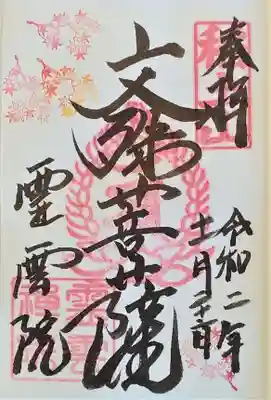 奉拝
令和二年
十一月二十一日
文殊菩薩
霊雲院